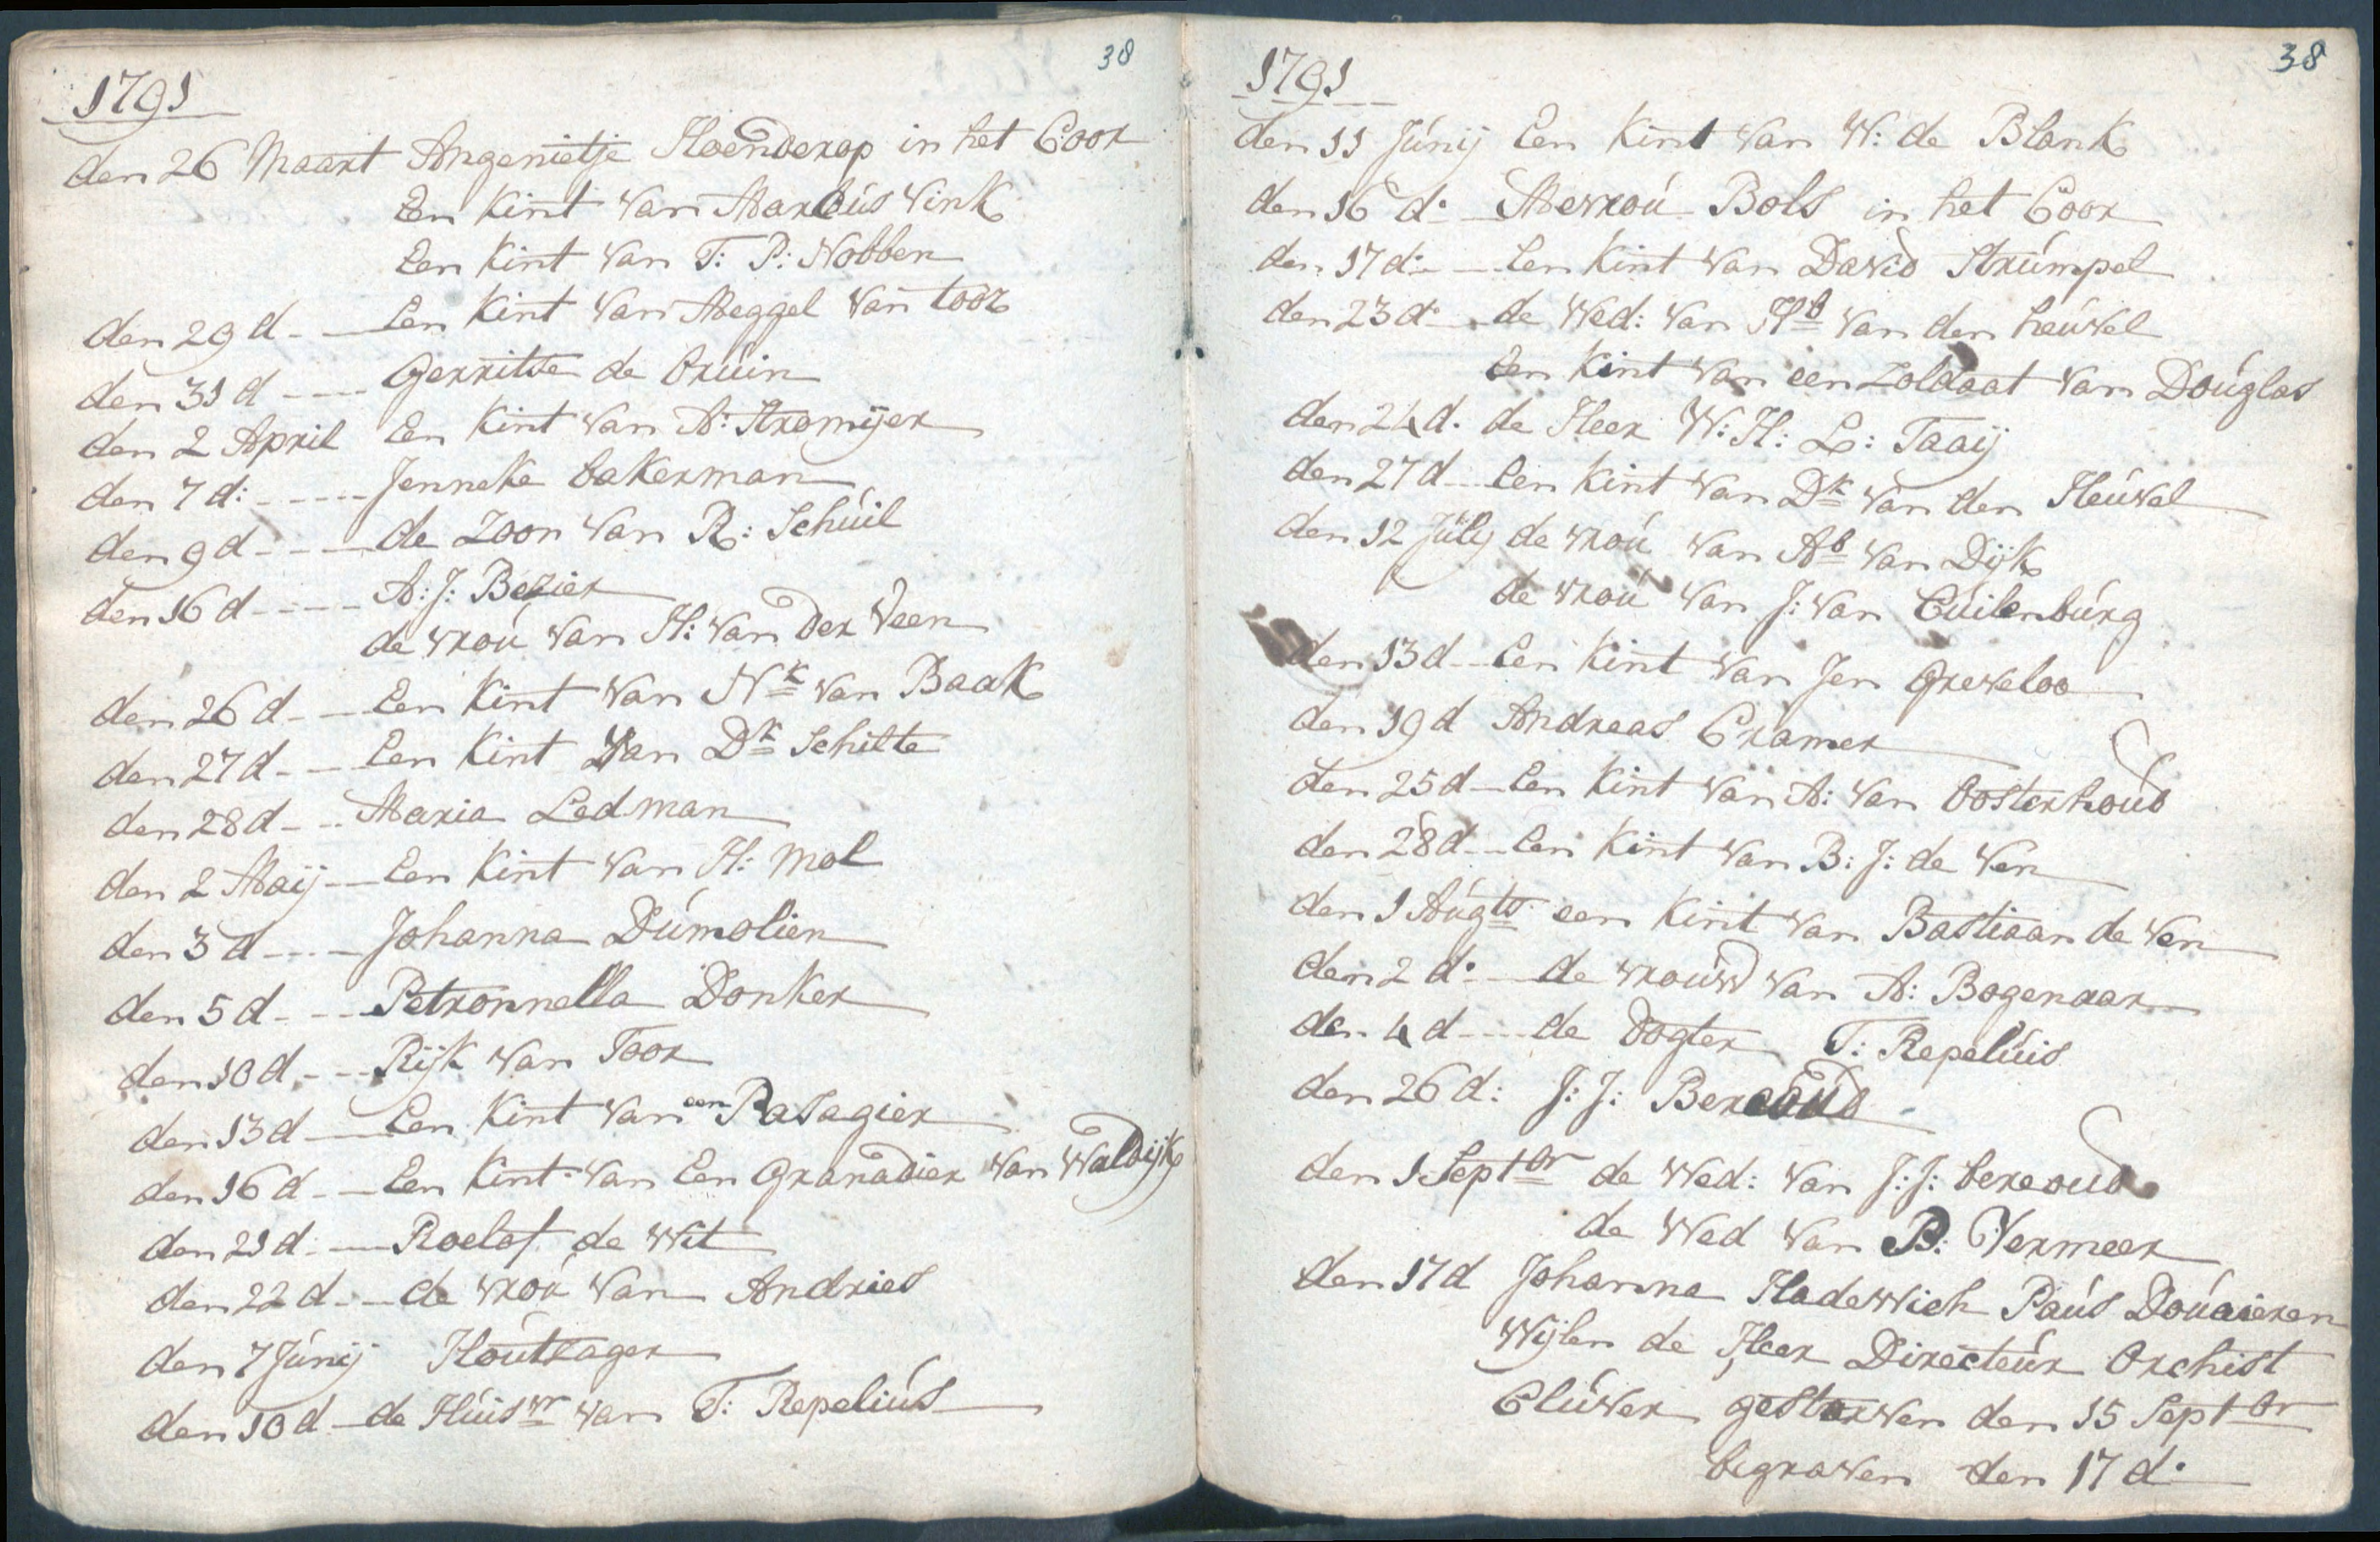 38
1791
den 26 Maart Angenietje Hoenderop in het Coor
Een Kint van Marcus Vink
Een Kint van T: P: Nobben
den 29 d - - Een Kint van Meggel van toor
den 31 d - - - Gerritse de bruin
den 2 April Een Kint van A: Stromijer
den 7 d: - - - - Jenneke bakerman
den 9 d - - - de Zoon van R: Schuil
den 16 d - - - - A: J: Bezier
de vrou van H: van der Veen
den 26 d - - Een Kint van Nk van Baak
den 27 d - - Een Kint van Dk Schilte
den 28 d - - Maria Ledman
den 2 Maij - Een Kint van H: Mol
den 3 d - - - Johanna Dumolien
den 5 d - - - Petronnella Donker
den 10 d - - - Rijk van Toor
den 13 d - Een Kint van een Pasagier
den 16 d - - Een Kint van Een Granadier van Waldijk
den 21 d - - Roelof de Wit
den 22 d - - de vrou van Andries
den 7 Junij Houtzager
den 10 d - de Huisvr van T: Repelius
38
1791
den 11 Junij Een Kint van W: de Blank
den 16 d: - Mevrou Bols in het Coor
den 17 d: - - Een Kint van David Strumpel
den 23 d: - - de Wed: van Hb van den heuvel
Een Kint van een Zoldaat van Douglas
den 24 d. de Heer W: H: L: Taaij
den 27 d - Een Kint van Dk van den Heuvel
den 12 Julij de vrou van Ab van Dijk
de vrou van J: van Cuilenburg
den 13 d - - Een Kint van Jen Greveloo
den 19 d Andreas Cramer
den 25 d - Een Kint van A: van Oosterhoud
den 28 d - - Een Kint van B: J: de Ven
den 1 Augts een Kint van Bastiaan de Ven
den 2 d: - de vrouw van A: Bogenaar
den 4 d - - - de dogter T: Repeluis
den 26 d: J: J: Bereoud
den 1 Septbr de Wed: van J: J: bereoud
de Wed van B: Vermeer
den 17 d Johanna Hadewich Paus Douaieren
Wijlen de Heer Directeur Orchist
Cluver gestorven den 15 Septbr
begraven den 17 d: